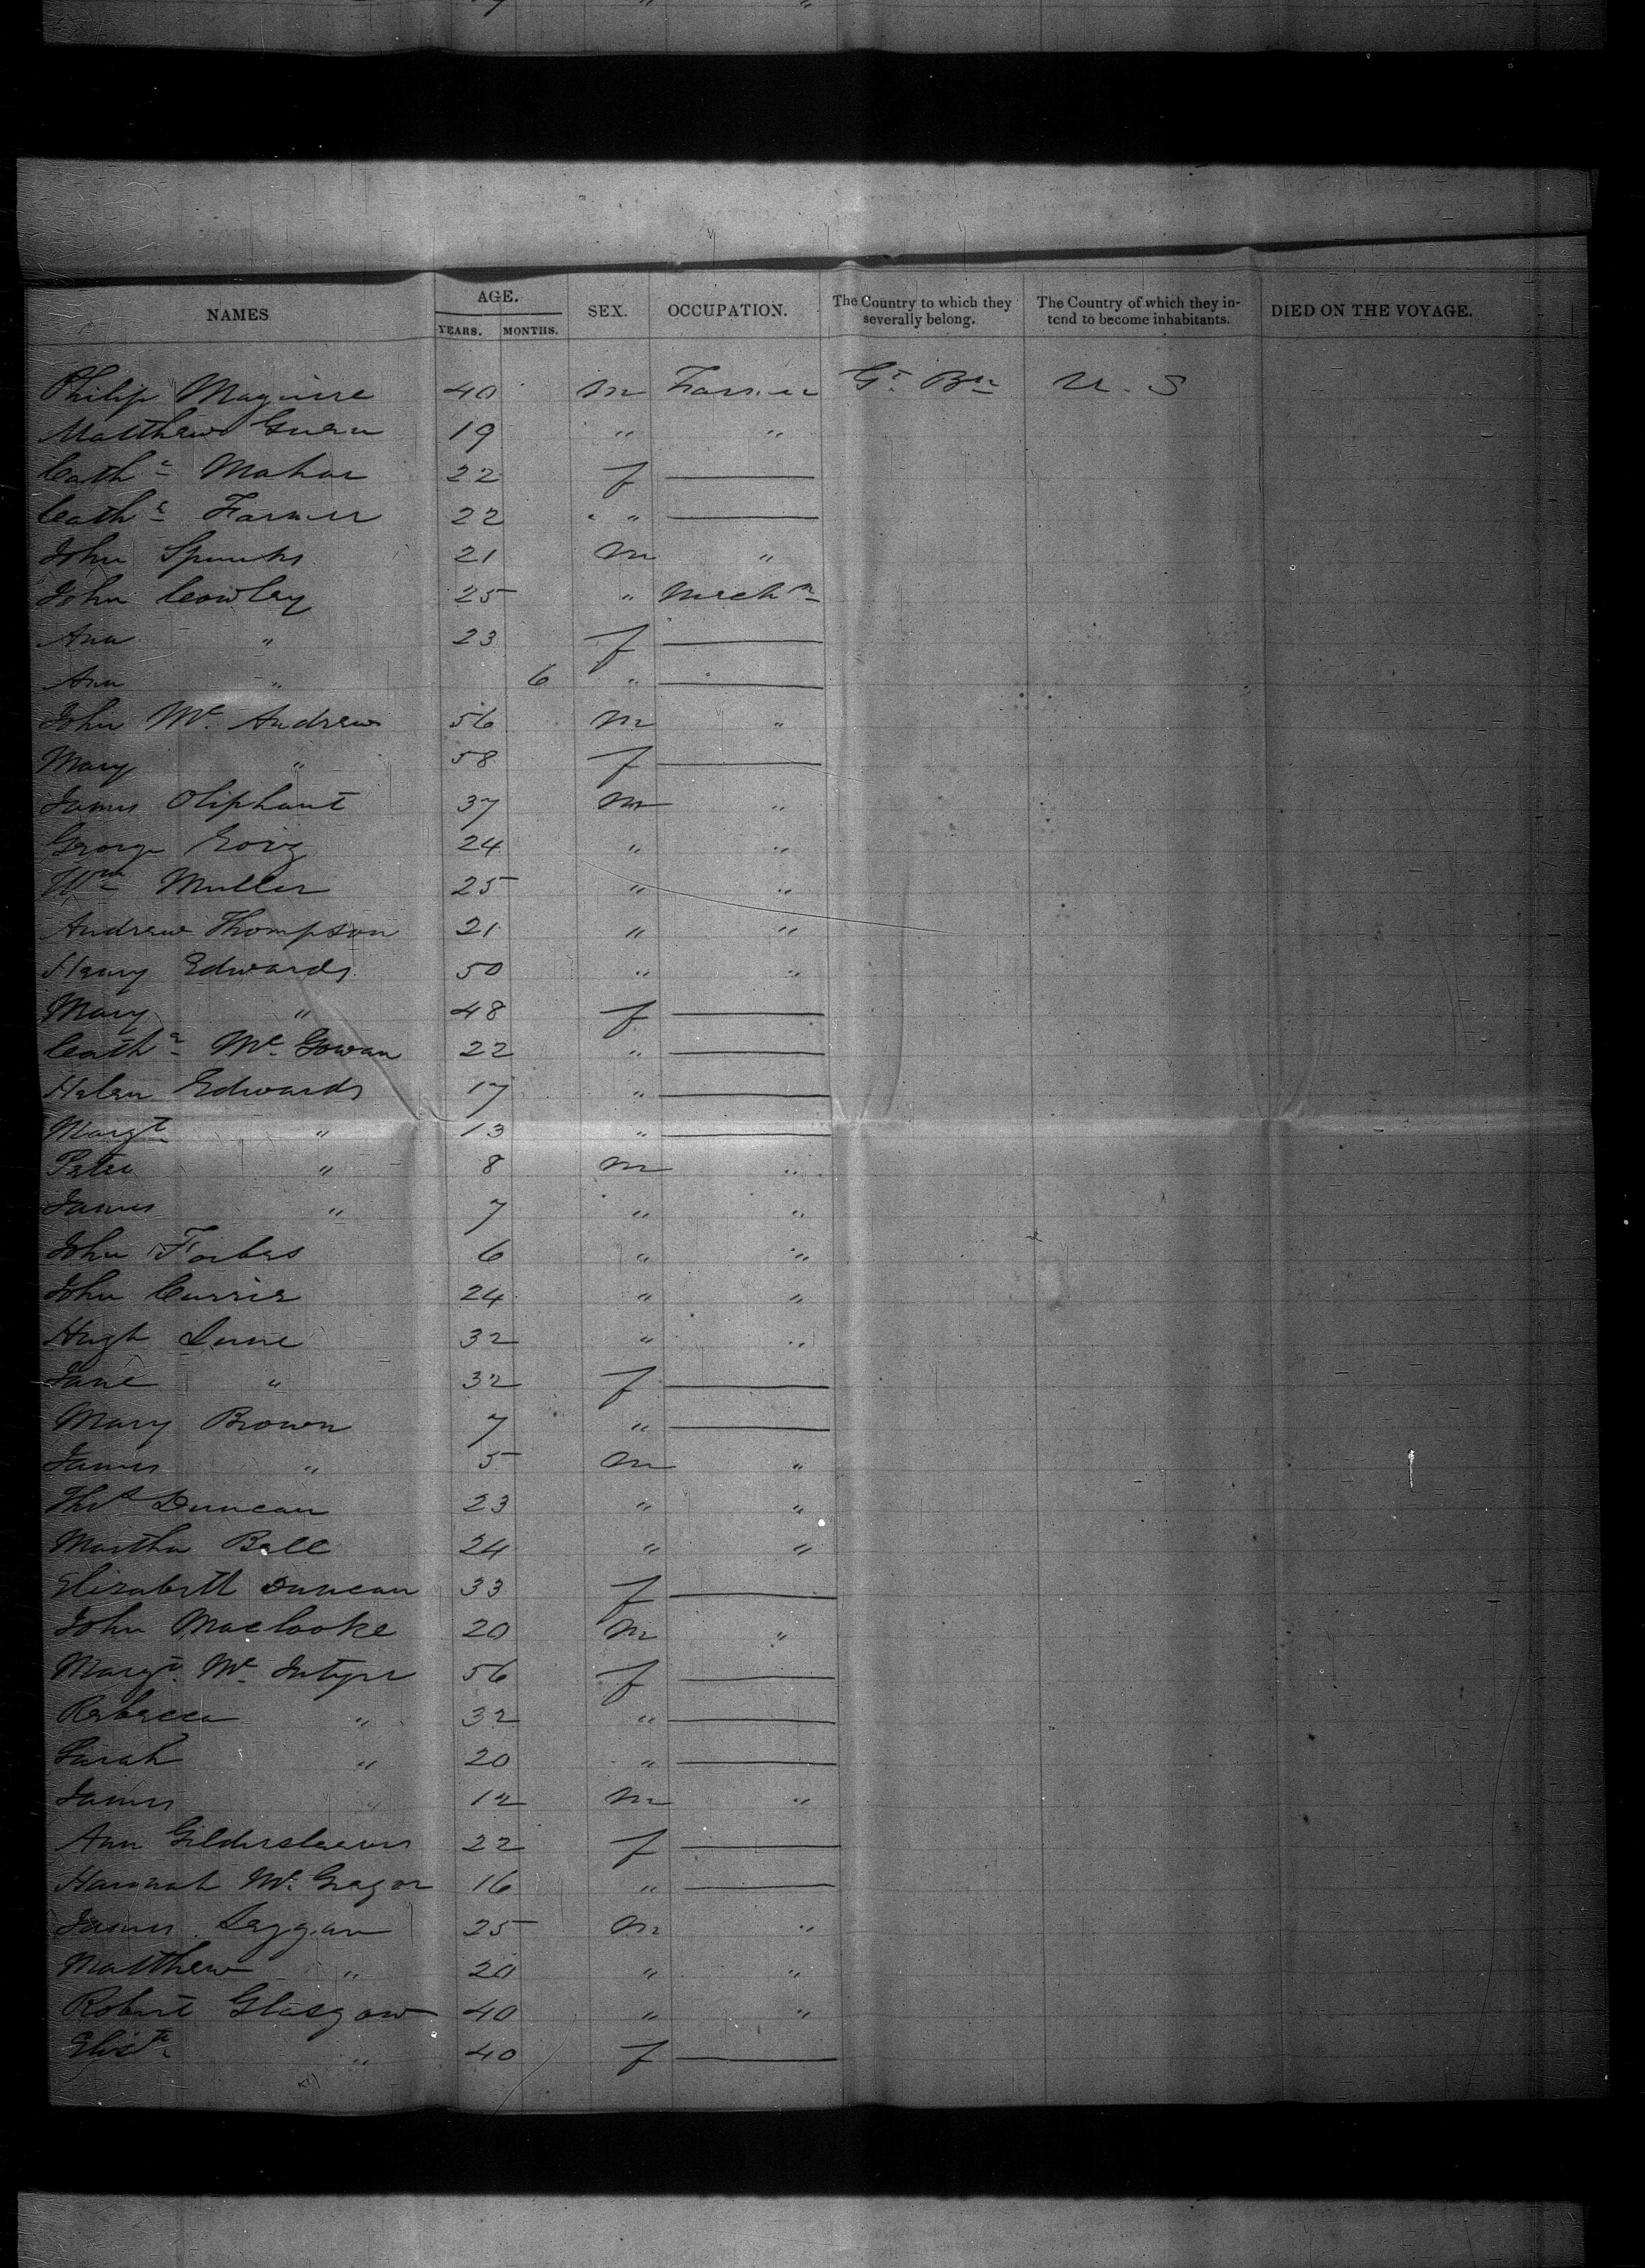 NAMES AGE. SEX. OCCUPATION. The Country to which they severally belong. The Country of which they intend to become inhabitants. DIED ON THE VOYAGE.
YEARS. MONTHS.
Philip Maguire 40 m Farmer Gt. Brn U. S
Matthew 19 " "
Cathe Mahar 22 f —
Cathe Farmer 22 " —
John 21 m "
John Cowley 25 " Mechn
Ann " 23 f —
Ann " 6 " —
John Mc Andrew 56 m "
Mary " 58 f —
James Oliphant 37 m "
George 24 " "
Wm Muller 25 " "
Andrew Thompson 21 " "
Henry Edwards 50 " "
Mary " 48 f —
Cathe Mc Gowan 22 " —
Helen Edwards 17 " —
Margt " 13 " —
Peter " 8 m "
James " 7 " "
John Forbes 6 " "
John Currie 24 " "
Hugh 32 " "
Jane " 32 f —
Mary Brown 7 " —
James " 5 m "
Thos Duncan 23 " "
Martha Bell 24 " "
Elizabeth Duncan 33 f —
John 20 m "
Margt. Mc Intyre 56 f —
Rebecca " 32 " —
Sarah " 20 " —
James " 12 m "
Ann Gildersleeves 22 f —
Hannah Mc Gregor 16 " —
James Leggan 25 m "
Matthew " 20 " "
Robert Glasgow 40 " "
Elizth " 40 f —